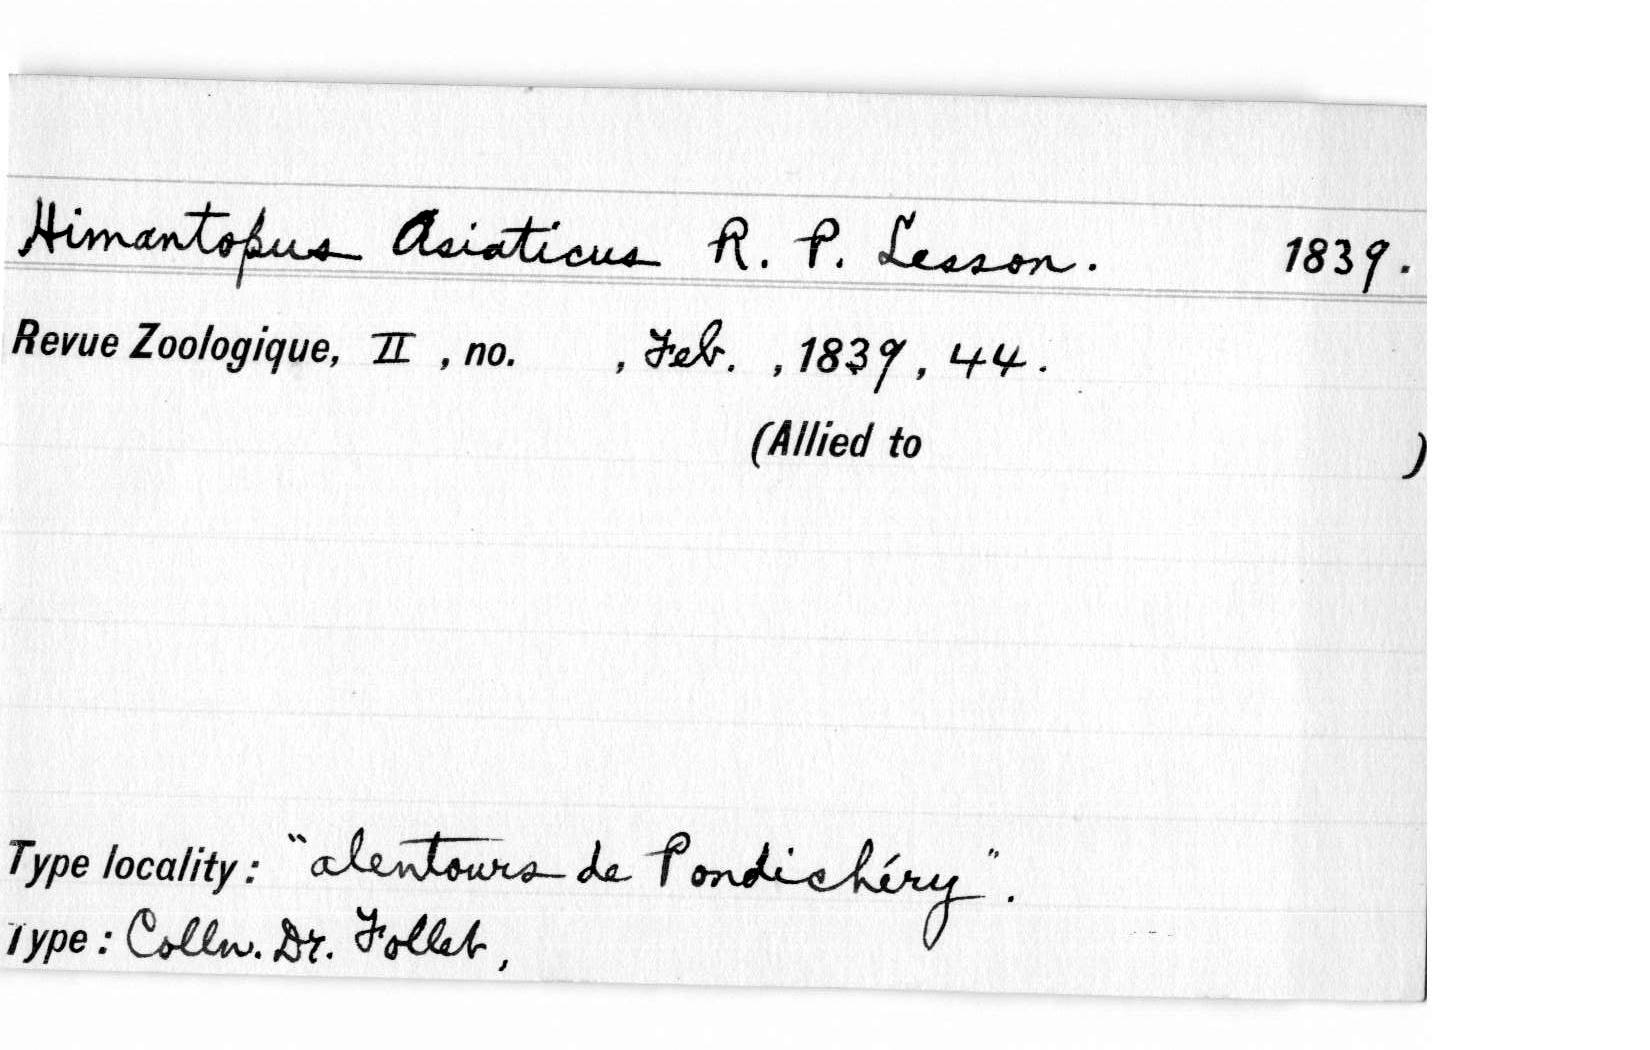 Himantopus Asiaticus R. P. Lesson. 1839.
Revue Zoologique, II , no. , Feb. , 1839, 44.
(Allied to )
Type locality: "alentours de Pondichéry".
Type: Colln. Dr. Follet,